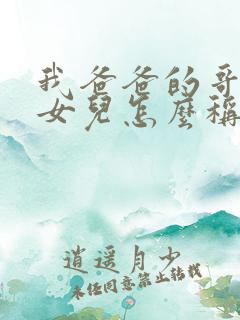 我爸爸的哥
女兒怎麼稱
逍遥月少
未经同意禁止转载